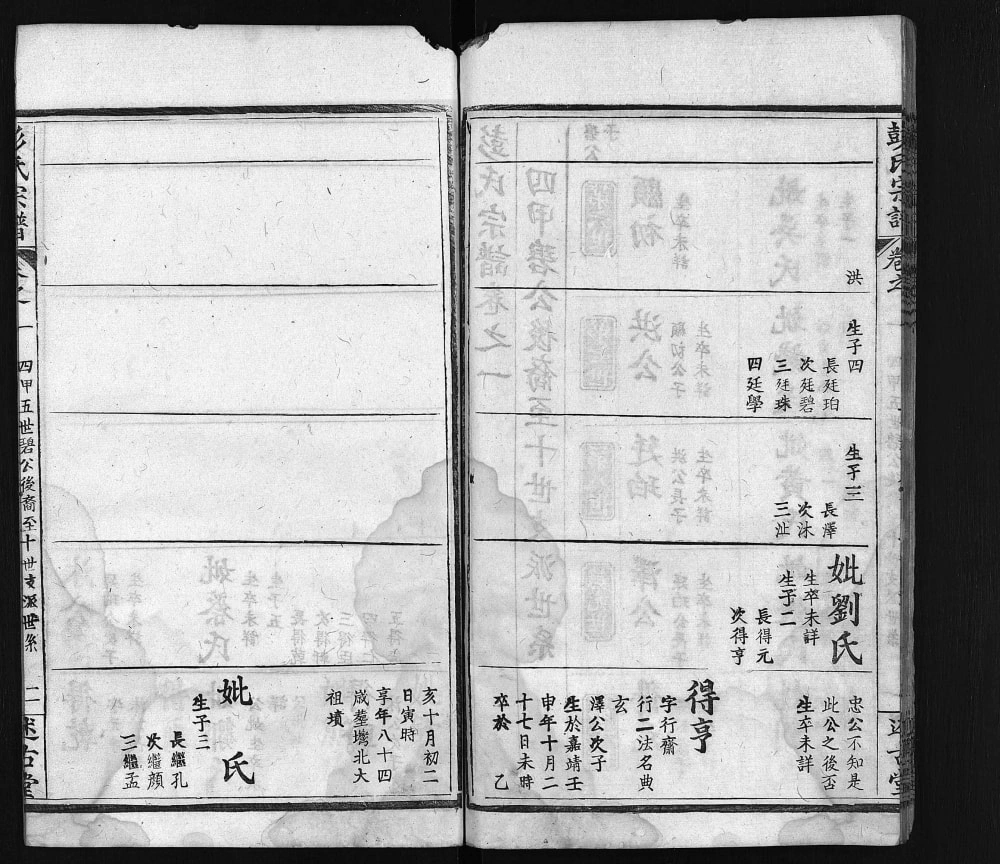 彭氏宗譜
卷之一
洪
生子四
長廷珀
次廷碧
三廷珠
四廷學
生子三
長澤
次泳
三沚
妣劉氏
生卒未詳
生子二
長得元
次得亨
忠公不知是
此公之後否
生卒未詳
得亨
字行齋
行二法名典
玄
澤公次子
生於嘉靖壬
申年十月二
十七日未時
卒於乙
亥十月初二
日寅時
享年八十四
歲塟塆北大
祖墳
妣 氏
生子三
長繼孔
次繼顏
三繼孟
彭氏宗譜
卷之一
四甲五世碧公後裔至十世支派世系
二
述古堂